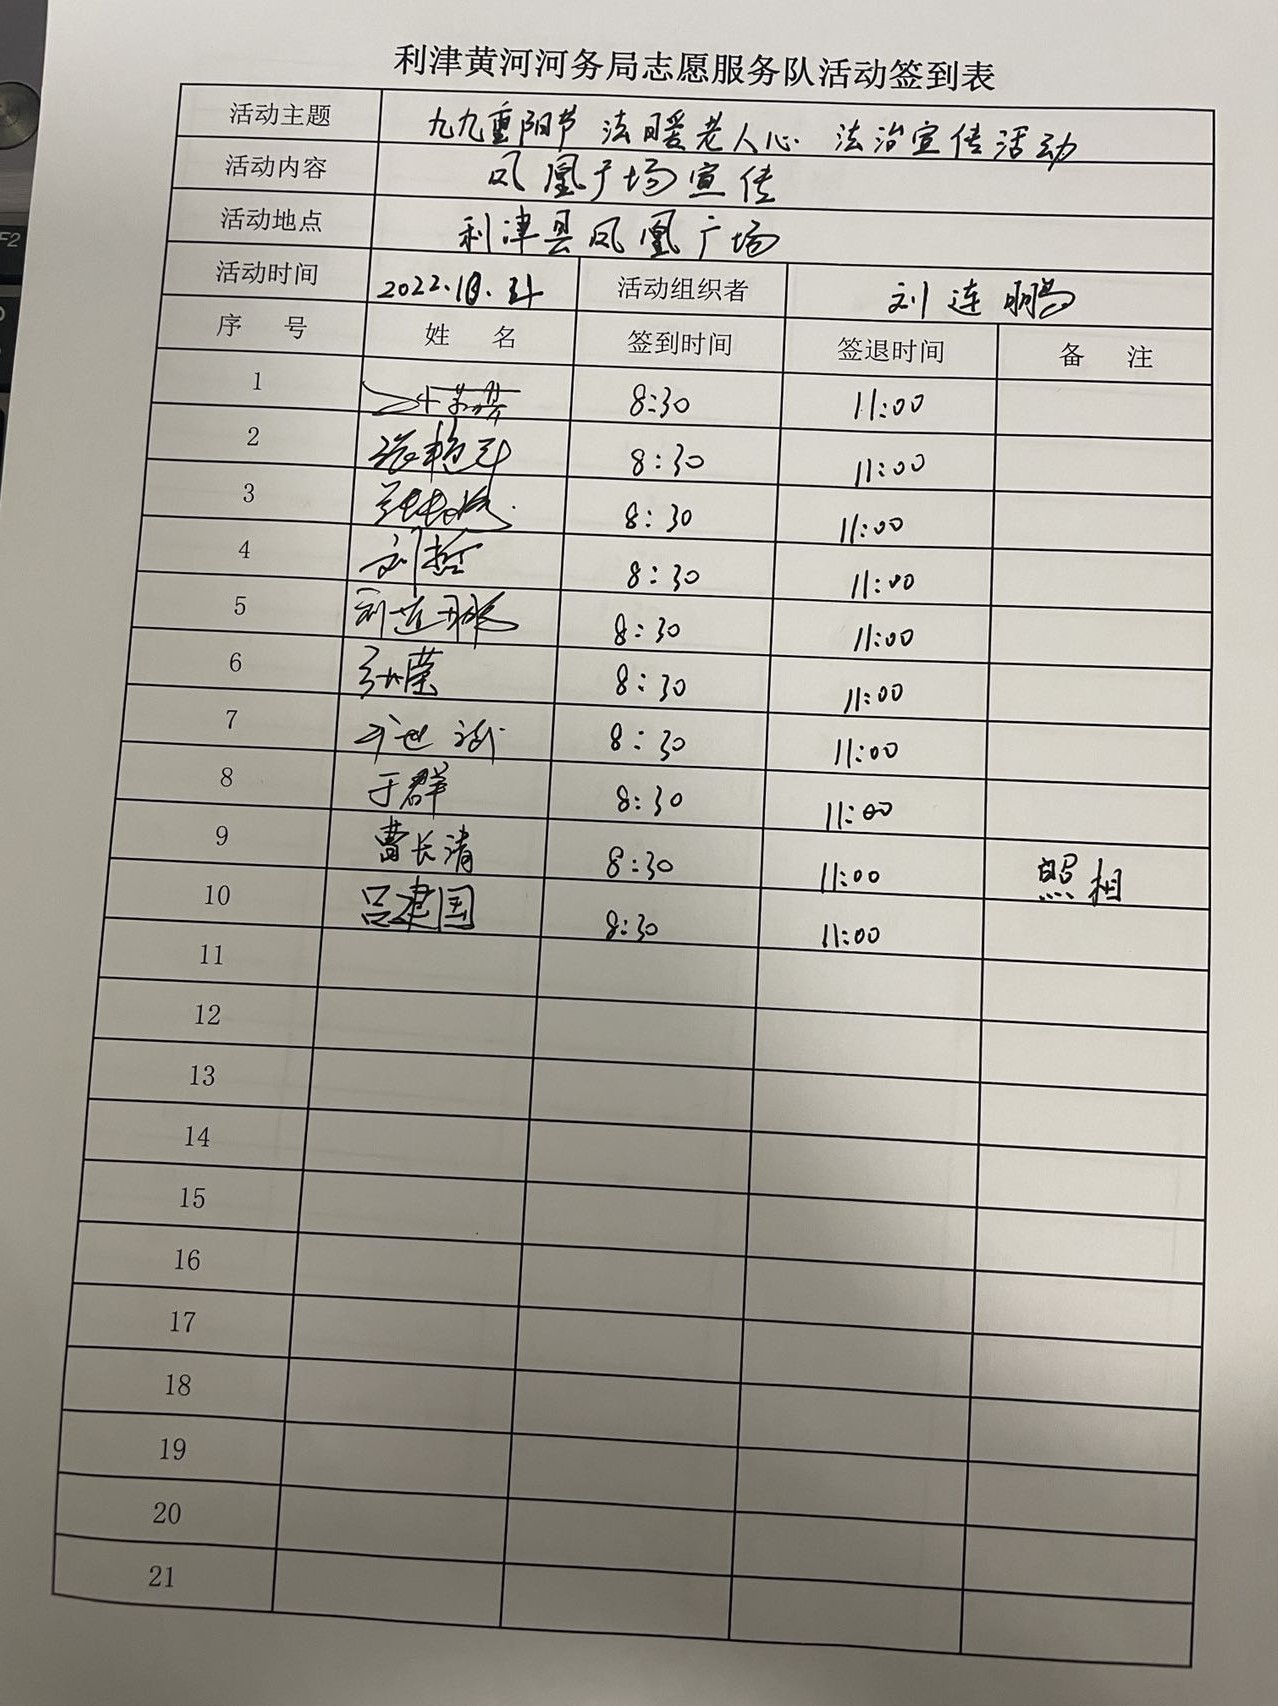 利津黄河河务局志愿服务队活动签到表
活动主题 九九重阳节 法暖老人心 法治宣传活动
活动内容 凤凰广场宣传
活动地点 利津县凤凰广场
活动时间 2022.10. 活动组织者 刘连鹏
序 号 姓 名 签到时间 签退时间 备 注
1 8:30 11:00
2 8:30 11:00
3 8:30 11:00
4 刘哲 8:30 11:00
5 刘连鹏 8:30 11:00
6 张荣 8:30 11:00
7 8:30 11:00
8 于群 8:30 11:00
9 曹长清 8:30 11:00 照相
10 吕建国 8:30 11:00
11
12
13
14
15
16
17
18
19
20
21
F2